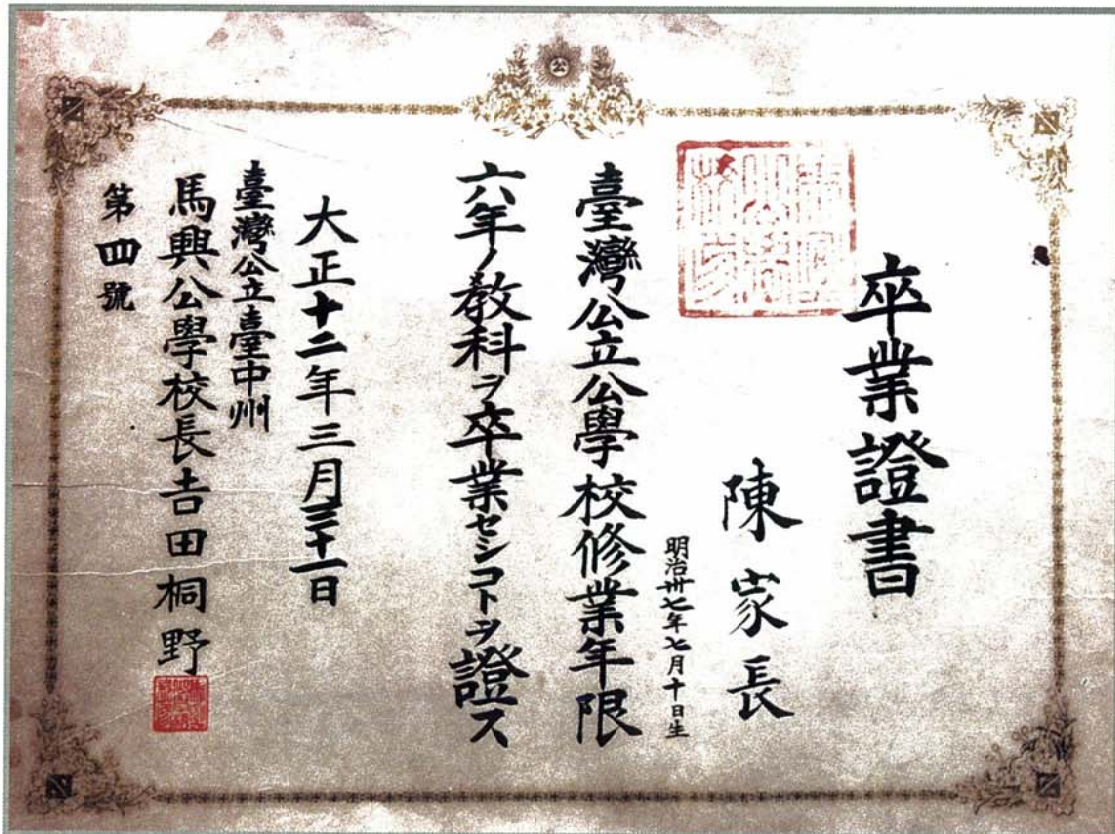 卒業證書
陳家長
明治卅七年七月十日生
臺灣公立公學校修業年限
六年ノ教科ヲ卒業セシコトヲ證ス
大正十二年三月三十一日
臺灣公立臺中州
馬興公學校長吉田桐野
第四號